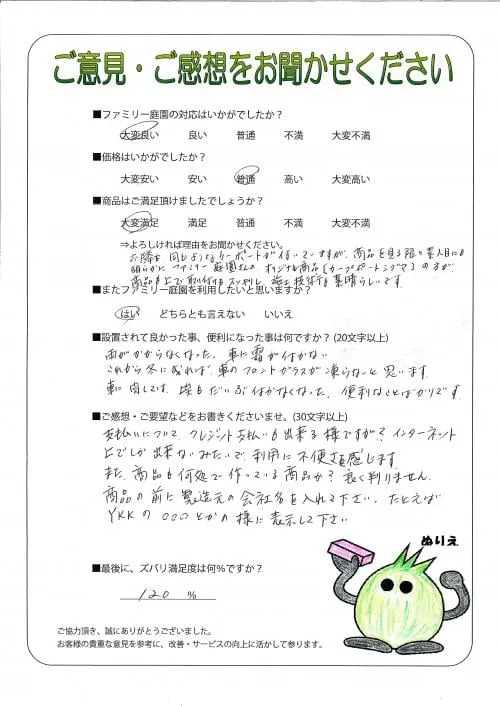 ご意見・ご感想をお聞かせください
■ファミリー庭園の対応はいかがでしたか？
大変良い 良い 普通 不満 大変不満
■価格はいかがでしたか？
大変安い 安い 普通 高い 大変高い
■商品はご満足頂けましたでしょうか？
大変満足 満足 普通 不満 大変不満
⇒よろしければ理由をお聞かせください。
お隣も同じようなカーポートが付いていますが、商品を見る限り素人目にも
明らかにファミリー庭園さんの、オリジナル商品［カーポートシグマ］の方が、
商品も上で取付けもスッキリし、施工技術も素晴らしいです。
■またファミリー庭園を利用したいと思いますか？
はい どちらとも言えない いいえ
■設置されて良かった事、便利になった事は何ですか？(20文字以上)
雨がかからなくなった。車に霜が付かない
これから冬になれば、車のフロントガラスが凍らないと思います。
車に関しては、埃もだいぶ付かなくなった。便利なことばかりです
■ご感想・ご要望などをお書きくださいませ。(30文字以上)
支払いについて、クレジット支払いも出来る様ですが？インターネット
上でしか出来ないみたいで、利用に不便さを感じます
また、商品も何処で作っている商品か？良く判りません。
商品の前に製造元の会社名を入れて下さい。たとえば
YKKの○○○とかの様に表示して下さい
ぬりえ
■最後に、ズバリ満足度は何％ですか？
120 ％
ご協力頂き、誠にありがとうございました。
お客様の貴重な意見を参考に、改善・サービスの向上に活かして参ります。